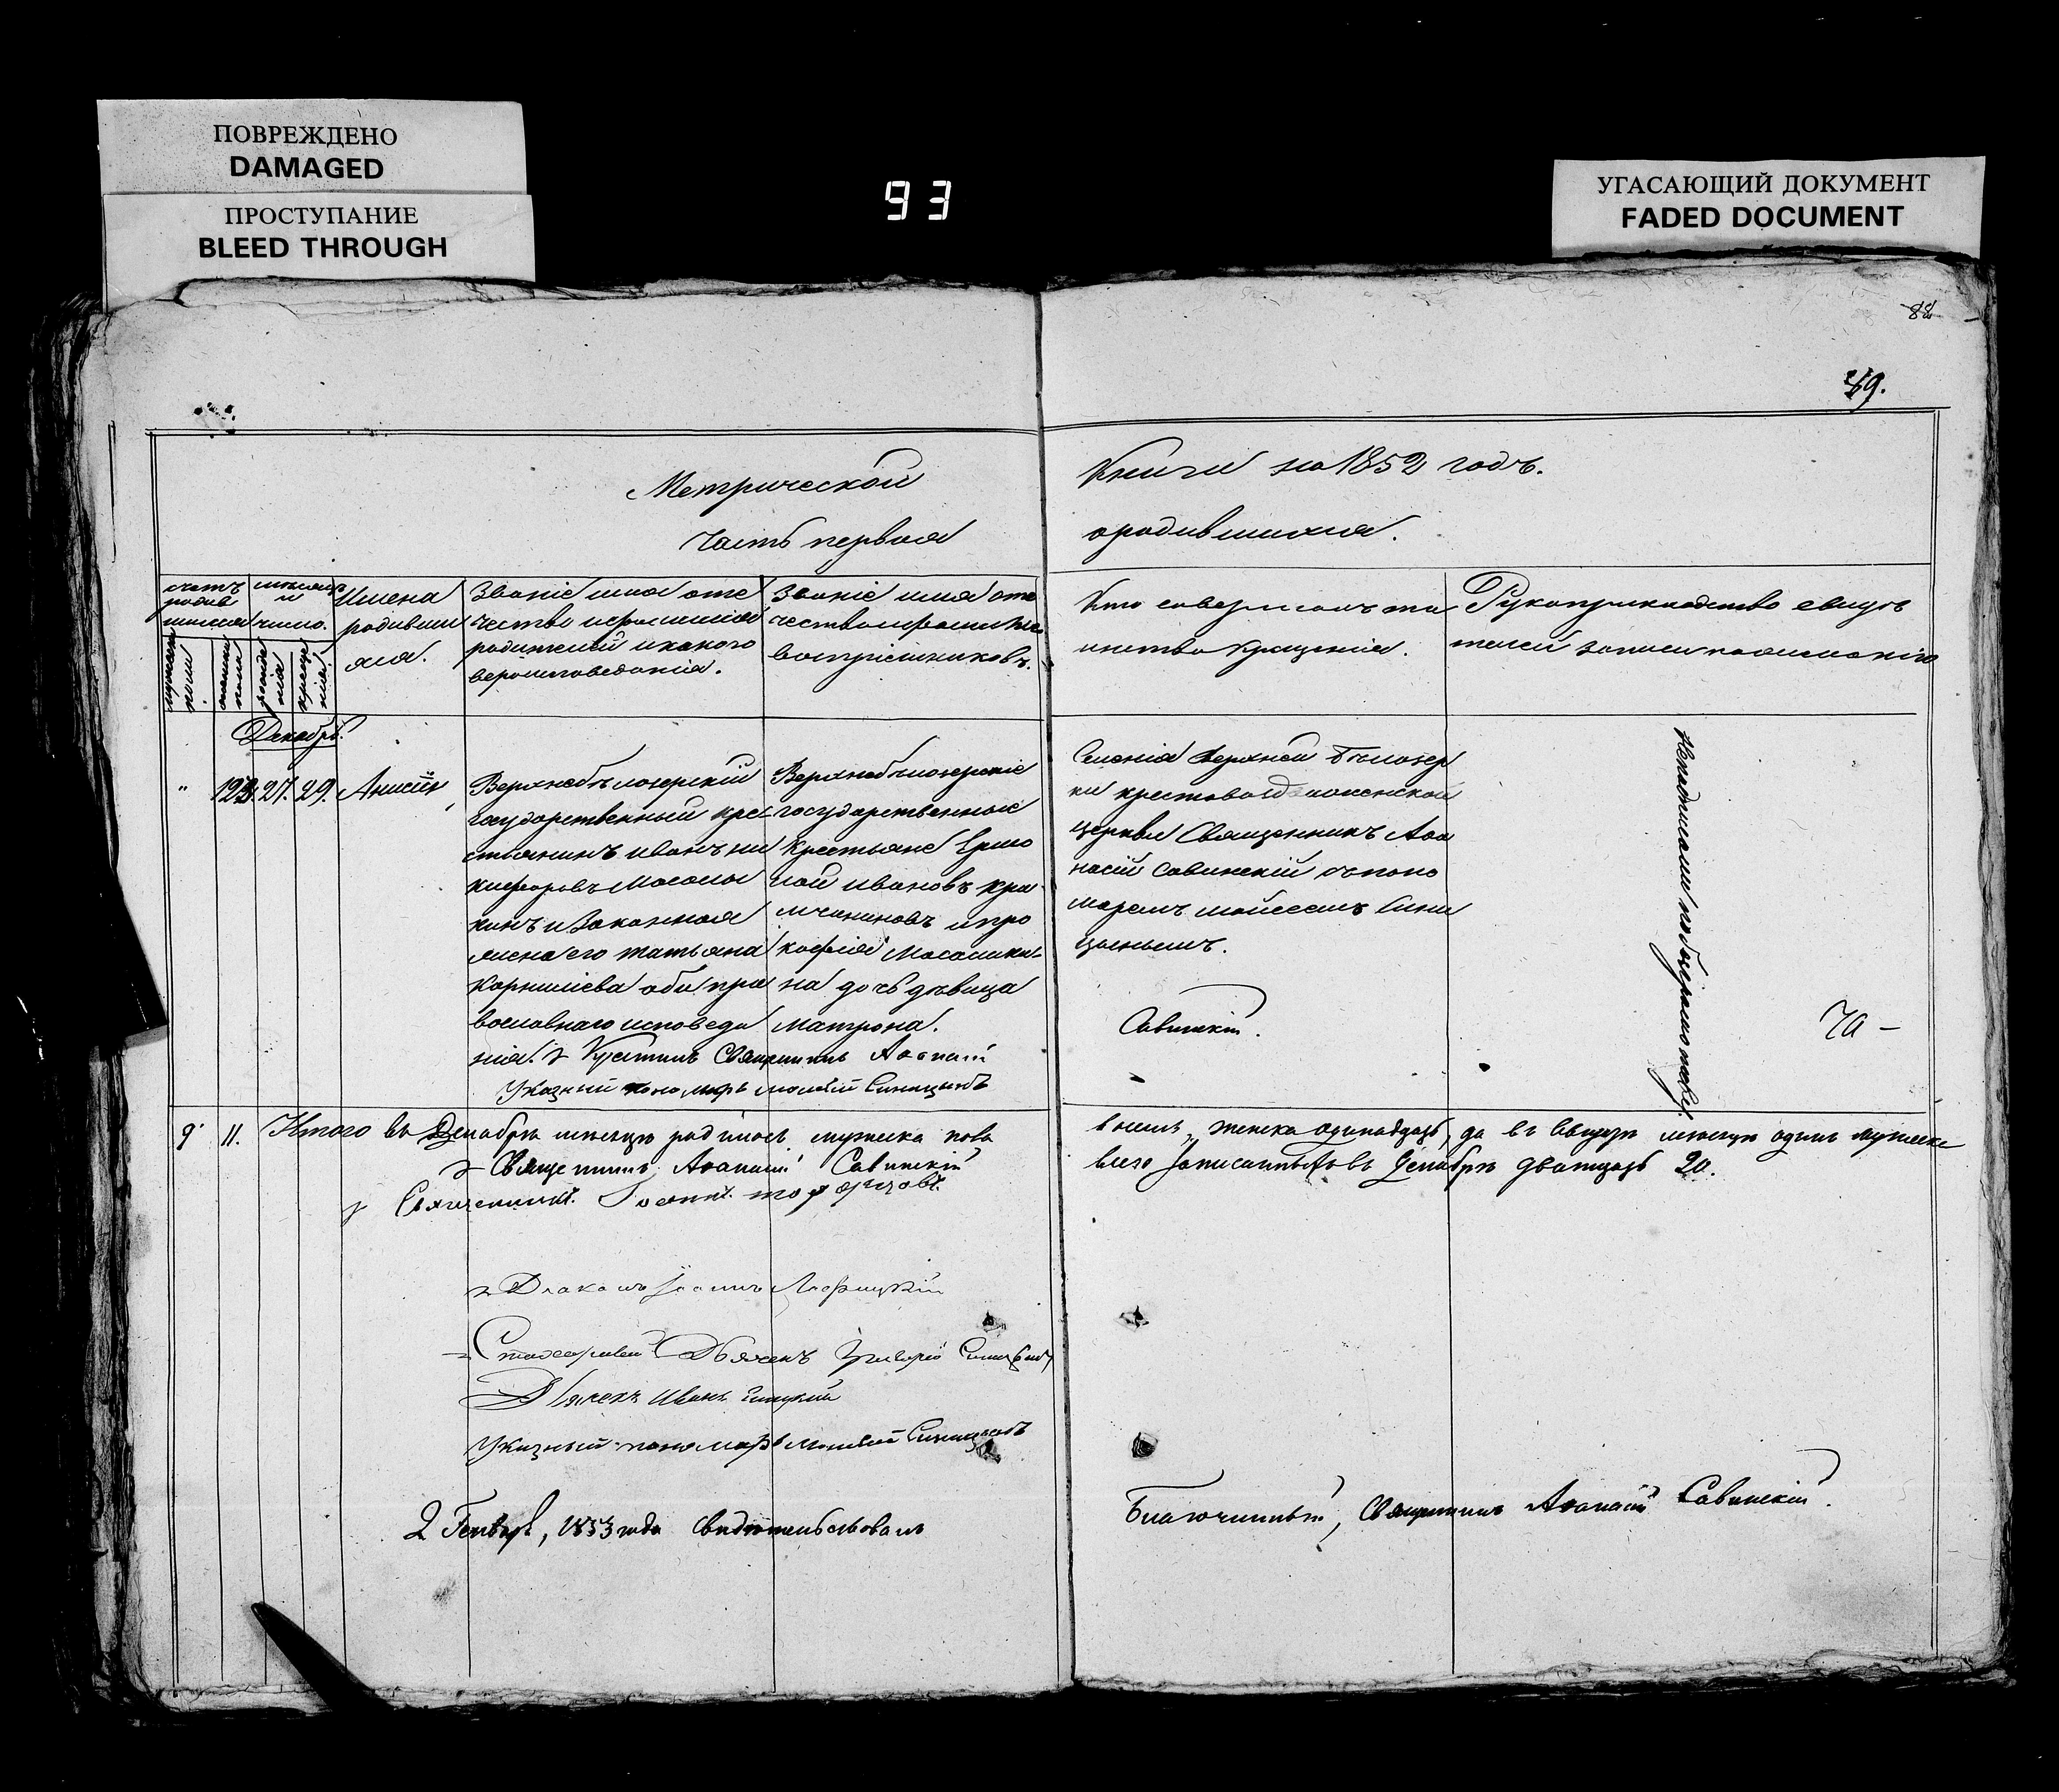 ПОВРЕЖДЕНО
DAMAGED
ПРОСТУПАНИЕ
BLEED THROUGH
93
УГАСАЮЩИЙ ДОКУМЕНТ
FADED DOCUMENT
49.
Метрической
часть первая
Книги на 1852 годъ.
о родившихся.
счетъ
родив
шихся
мѣсяцъ
и
число.
Имена
родивши
хся.
Званіе имя оте
чество и фамилія
родителей и какого
вероисповеданія.
Званіе имя оте
чество и фамилія
воспріемниковъ.
Кто совершалъ та
инство крещенія.
Рукоприкладство свидѣ
телей записи по желанію
мужеска
пола.
женска
пола
рожде
нія
креще
нія.
Декабрь.
" 123. 27. 29. Анисія,
Верхнебѣлозерскій
государственный кре
стьянинъ Иванъ Ни
кифоровъ Масалы
кинъ и Законная
жена его Татьяна
Корнилиева оба пра
вославнаго исповеда
нія.
Крестилъ Священникъ Аѳанасій
Указный пономарь Моисей Синицынъ
Верхнебѣлозерскіе
государственные
Крестьяне Ермо
лай Ивановъ Кра
мчаниновъ и про
кофія Масалыки
на дочь дѣвица
Матрона.
Селенія Верхней Бѣлозер
ки крестовоздвиженской
церкви Священникъ Аѳа
насій Савинскій съ поно
маремъ Моисеемъ Сини
цынымъ.
Савинскій.
Неподписали по безграмотству.
9 11. Итого въ Декабрѣ мѣсяцѣ родилось мужеска пола
восемь, женска одинадцать, да въ мѣсяцѣ одинъ мужеска
всего записанныхъ въ Декабрѣ двадцать 20.
Священникъ Аѳанасій Савинскій
Священникъ Іоаннъ
Діаконъ Іоаннъ
Дьячекъ Григорій
Дьячекъ Иванъ
Указный пономарь Моисей Синицынъ
2 Генваря, 1853 года свидѣтельствовалъ
Благочинный, Священникъ Аѳанасій Савинскій.